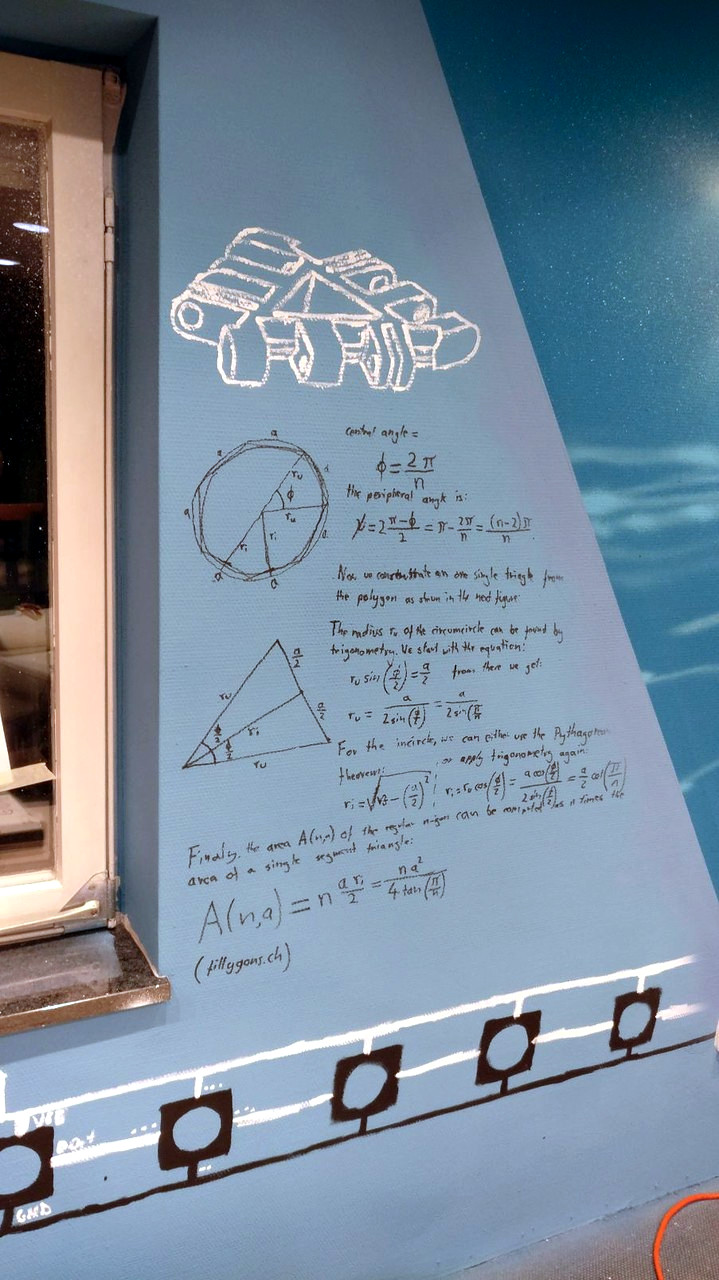 central angle =
ϕ = 2π/n
the peripheral angle is:
= 2 (π-ϕ)/2 = π - 2π/n = (n-2)π/n
Now we an one single from
the polygon as shown in the next figure:
The radius rᵤ of the circumcircle can be found by
trigonometry. We start with the equation:
rᵤ sin(ϕ/2) = a/2 from there we get:
rᵤ = a/(2 sin(ϕ/2)) = a/(2 sin(π/n))
For the incircle, we can either use the
theorem: or apply trigonometry again:
rᵢ = rᵤ cos(ϕ/2) = a cos(ϕ/2)/(2 sin(ϕ/2)) = a/2 cot(π/n)
Finally, the area A(n,a) of the regular n-gon can be computed as n times the
area of a single segment triangle:
A(n,a) = n a rᵢ/2 = n a²/(4 tan(π/n))
(fillygons.ch)
a
a
a
a
a
a
rᵤ
ϕ
rᵤ
rᵢ
rᵢ
a/2
a/2
rᵤ
rᵢ
rᵤ
ϕ/2
ϕ/2
GND